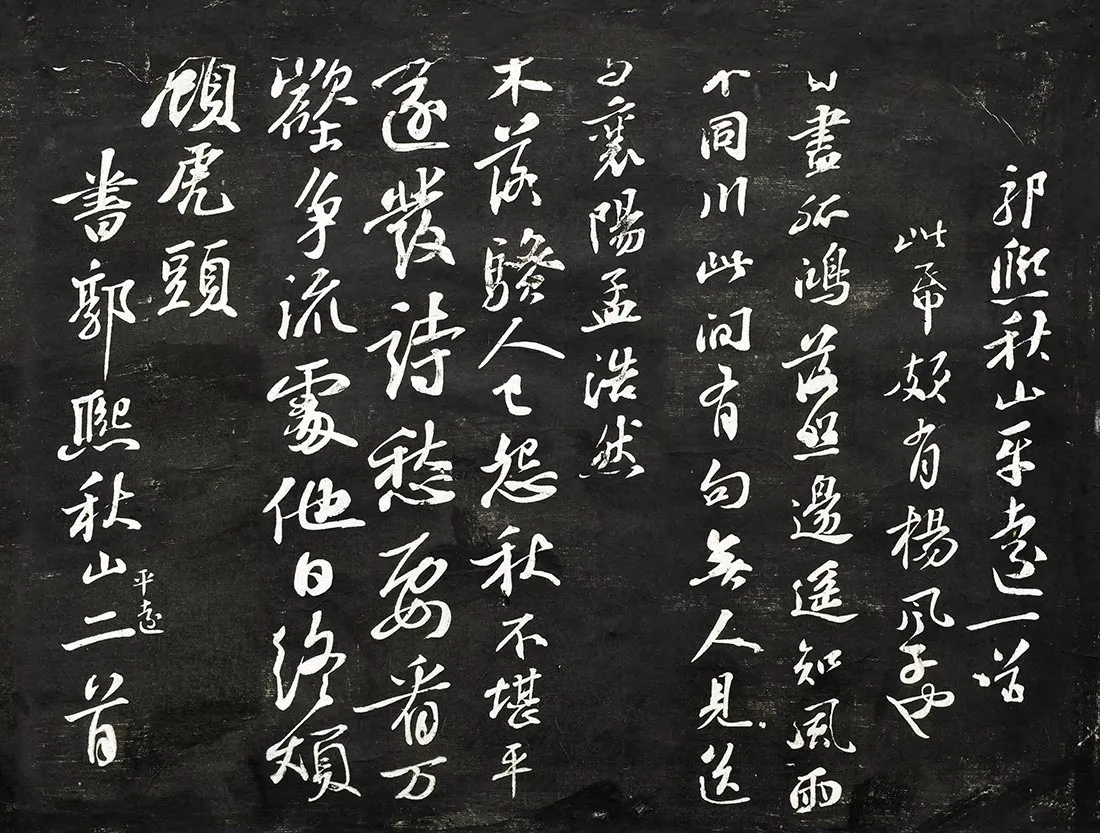 郭熈秋山平遠一
此帋頗有楊風子也
目盡孤鴻落照邊遥知風雨
不同川此間有句無人見送
与襄陽孟浩然
木落騷人已怨秋不堪平
遠發詩愁要看万
壑争流處他日終煩
顧虎頭
書郭熈秋山平遠二首